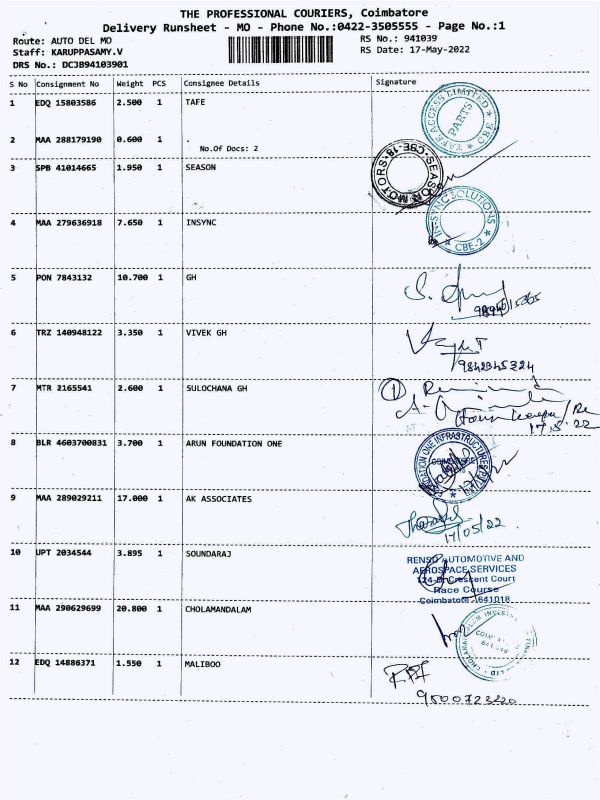 THE PROFESSIONAL COURIERS, Coimbatore
Delivery Runsheet - MO - Phone No.:0422-3505555 - Page No.:1
Route: AUTO DEL MO
Staff: KARUPPASAMY.V
DRS No.: DCJB94103901
RS No.: 941039
RS Date: 17-May-2022
S No Consignment No Weight PCS Consignee Details Signature
1 EDQ 15803586 2.500 1 TAFE
TAFE ACCESS LIMITED
PARTS
★ CBE ★
2 MAA 288179190 0.600 1 .
No.Of Docs: 2
3 SPB 41014665 1.950 1 SEASON
SEASON MOTORS
CBE-18
4 MAA 279636918 7.650 1 INSYNC
IN-SYNC SOLUTIONS
★ CBE-2 ★
5 PON 7843132 10.700 1 GH
6 TRZ 140948122 3.350 1 VIVEK GH
9842345324
7 MTR 2165541 2.600 1 SULOCHANA GH
1
17.5.22
8 BLR 4603700831 3.700 1 ARUN FOUNDATION ONE
FOUNDATION ONE INFRASTRUCTURES
9 MAA 289029211 17.000 1 AK ASSOCIATES
17/05/22
10 UPT 2034544 3.895 1 SOUNDARAJ
RENSO AUTOMOTIVE AND
AEROSPACE SERVICES
Crescent Court
Race Course
Coimbatore 641018
11 MAA 290629699 20.800 1 CHOLAMANDALAM
12 EDQ 14886371 1.550 1 MALIBOO